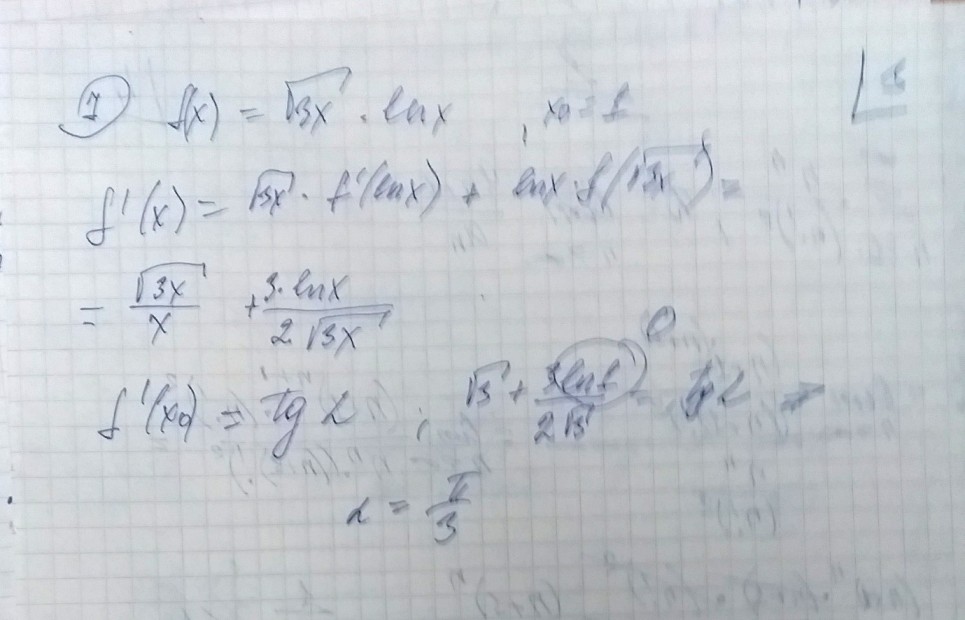 1 f(x) = √3x · ln x , x₀ = 1
f'(x) = √3x · f'(ln x) + ln x · f(√3x) =
= √3x/x + 3·ln x/2·√3x
f'(x₀) = tg α ; √3 + 3 ln 1/2√3 = tg α 0
α = π/3